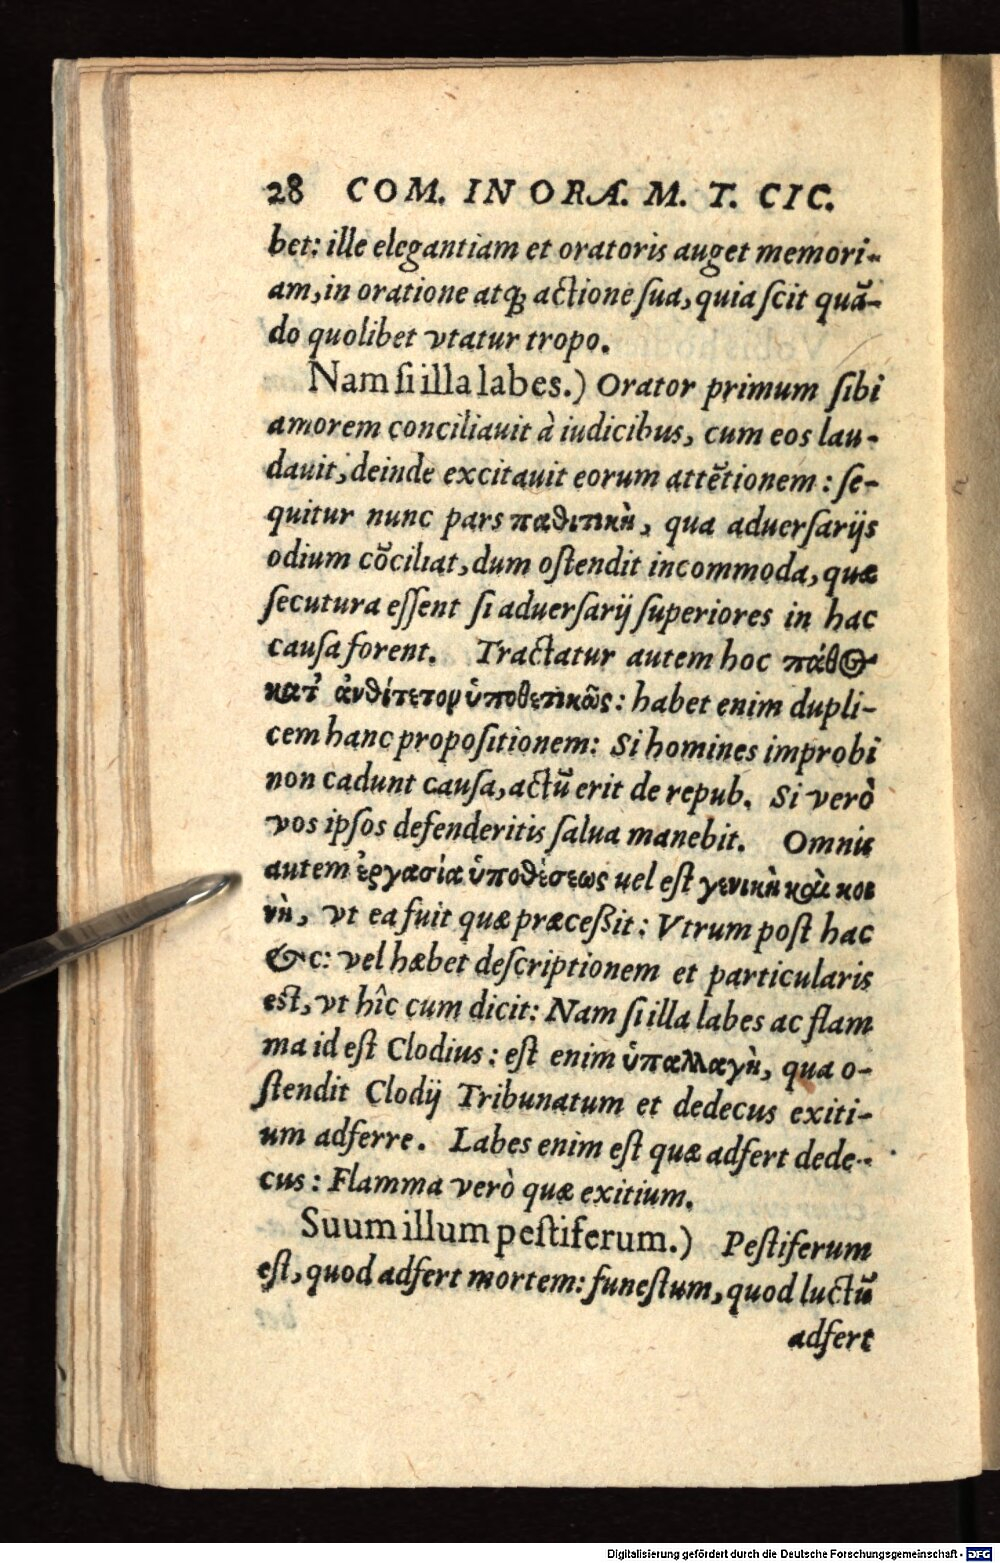 28 COM. IN ORA. M. T. CIC.
bet: ille elegantiam et oratoris auget memori-
am, in oratione atq; actione sua, quia scit quā-
do quolibet vtatur tropo.
Nam si illa labes.) Orator primum sibi
amorem conciliauit à iudicibus, cum eos lau-
dauit, deinde excitauit eorum attētionem: se-
quitur nunc pars παθιτικὴ, qua aduersarijs
odium cōciliat, dum ostendit incommoda, quæ
secutura essent si aduersarij superiores in hac
causa forent. Tractatur autem hoc πάθος
κατ' ἀνθίτετον ὑποθετικῶς: habet enim dupli-
cem hanc propositionem: Si homines improbi
non cadunt causa, actū erit de repub. Si verò
vos ipsos defenderitis salua manebit. Omnis
autem ἐργασία ὑποθέσεως uel est γενικὴ καὶ κοι
νὴ, vt ea fuit quæ præceßit: Vtrum post hac
&c: vel hæbet descriptionem et particularis
est, vt hîc cum dicit: Nam si illa labes ac flam
ma id est Clodius: est enim ὑπαλλαγὴ, qua o-
stendit Clodij Tribunatum et dedecus exiti-
um adferre. Labes enim est quæ adfert dede-
cus: Flamma verò quæ exitium.
Suum illum pestiferum.) Pestiferum
est, quod adfert mortem: funestum, quod luctū
adfert
Digitalisierung gefördert durch die Deutsche Forschungsgemeinschaft - DFG